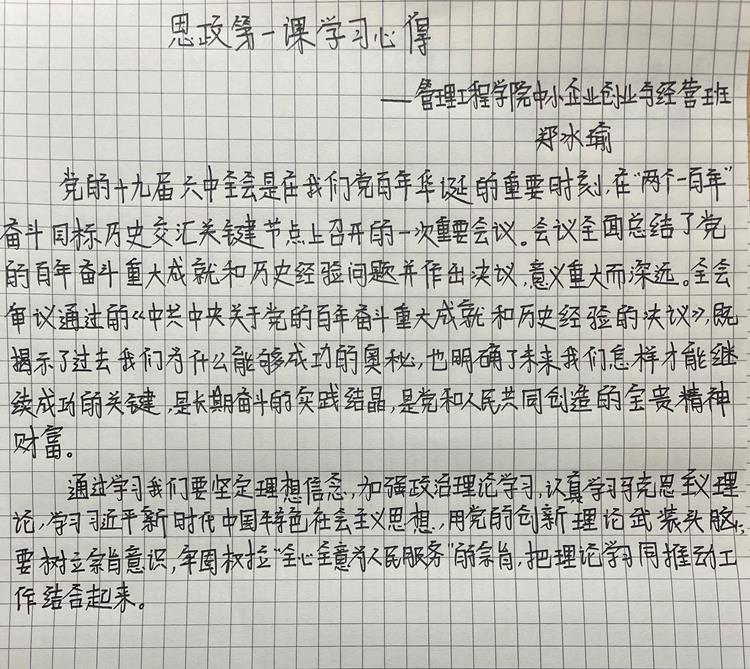 思政第一课学习心得
——管理工程学院中小企业创业与经营班
郑冰瑜
党的十九届六中全会是在我们党百年华诞的重要时刻,在“两个一百年”
奋斗目标历史交汇关键节点上召开的一次重要会议。会议全面总结了党
的百年奋斗重大成就和历史经验问题并作出决议,意义重大而深远。全会
审议通过的《中共中央关于党的百年奋斗重大成就和历史经验的决议》,既
揭示了过去我们为什么能够成功的奥秘,也明确了未来我们怎样才能继
续成功的关键,是长期奋斗的实践结晶,是党和人民共同创造的宝贵精神
财富。
通过学习我们要坚定理想信念,加强政治理论学习,认真学习马克思主义理
论,学习习近平新时代中国特色社会主义思想,用党的创新理论武装头脑,
要树立宗旨意识,牢固树立“全心全意为人民服务”的宗旨,把理论学习同推动工
作结合起来。